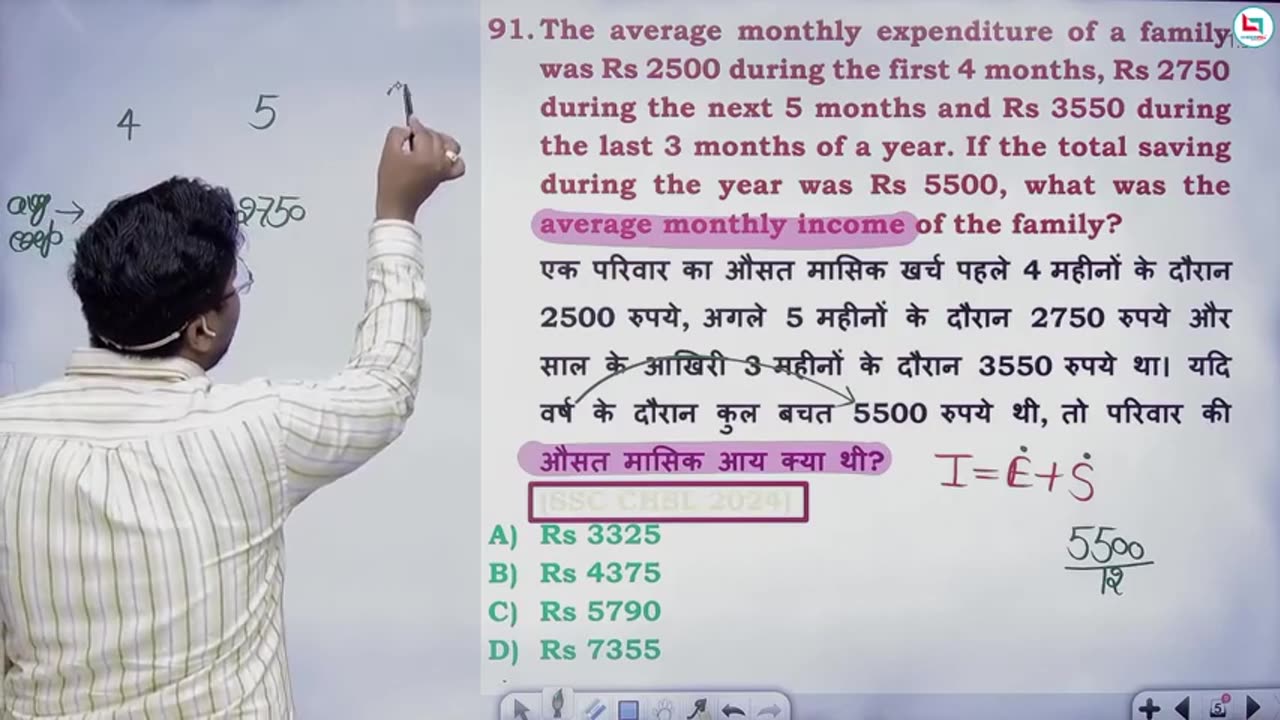 91. The average monthly expenditure of a family
was Rs 2500 during the first 4 months, Rs 2750
during the next 5 months and Rs 3550 during
the last 3 months of a year. If the total saving
during the year was Rs 5500, what was the
average monthly income of the family?
एक परिवार का औसत मासिक खर्च पहले 4 महीनों के दौरान
2500 रुपये, अगले 5 महीनों के दौरान 2750 रुपये और
साल के आखिरी 3 महीनों के दौरान 3550 रुपये था। यदि
वर्ष के दौरान कुल बचत 5500 रुपये थी, तो परिवार की
औसत मासिक आय क्या थी?
[SSC CHSL 2024]
A) Rs 3325
B) Rs 4375
C) Rs 5790
D) Rs 7355
I = E + S
5500
12
4 5
avg → 2750
exp
5